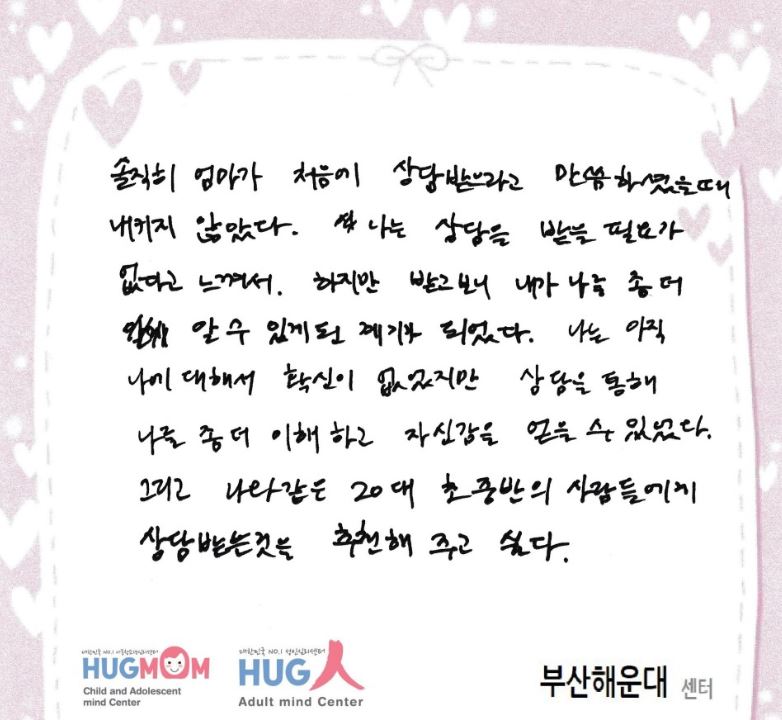 솔직히 엄마가 처음에 상담받으라고 말씀하셨을때
내키지 않았다. 나는 상담을 받을 필요가
없다고 느껴서. 하지만 받고보니 내가 나를 좀 더
알 수 있게된 계기가 되었다. 나는 아직
나에 대해서 확신이 없었지만 상담을 통해
나를 좀 더 이해하고 자신감을 얻을 수 있었다.
그리고 나와같은 20대 초중반의 사람들에게
상담받는것을 추천해 주고 싶다.
대한민국 NO.1 아동청소년심리센터
HUGMOM
Child and Adolescent
mind Center
대한민국 NO.1 성인심리센터
HUG人
Adult mind Center
부산해운대 센터